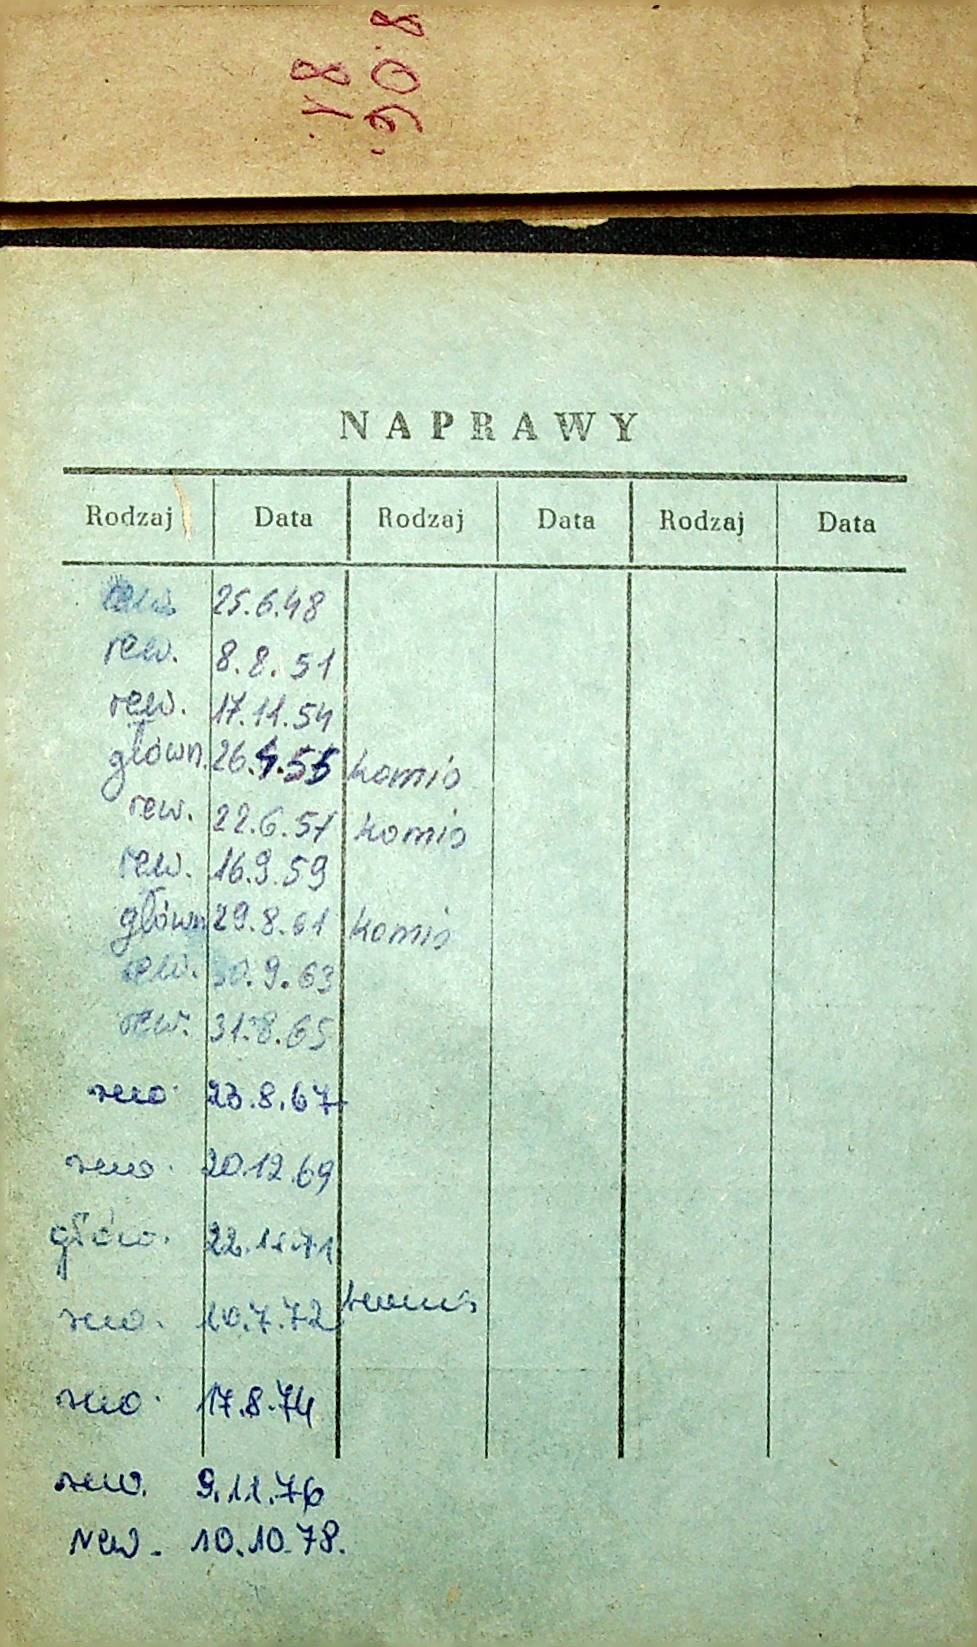 NAPRAWY
Rodzaj Data Rodzaj Data Rodzaj Data
rew. 25.6.48
rew. 8.8.51
rew. 17.11.54
główn. 26.4.55 komis
rew. 22.6.57 komis
rew. 16.9.59
główn 29.8.61 komis
rew. 30.9.63
rew. 31.8.65
rew. 23.8.67
rew. 20.12.69
główn. 22.11.71
rew. 10.7.72 komis
rew. 17.8.74
rew. 9.11.76
rew. 10.10.78.